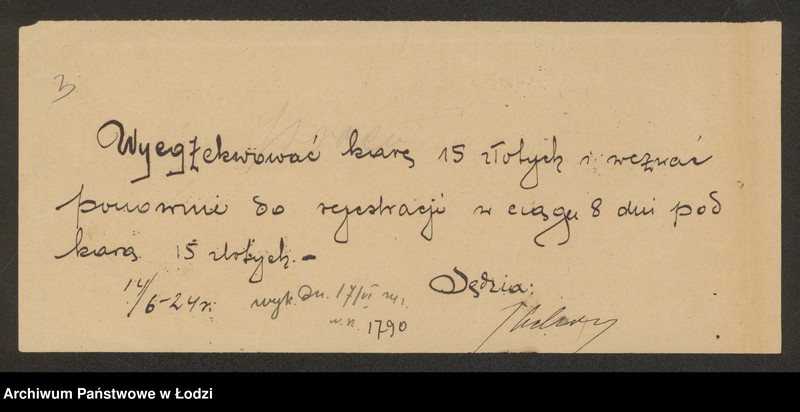 3
Wyegzekwować karę 15 złotych i wezwać
ponownie do rejestracji w ciągu 8 dni pod
karą 15 złotych.-
Sędzia:
14/6-24 r. wyk. dn. 17/VI
1790
Archiwum Państwowe w Łodzi